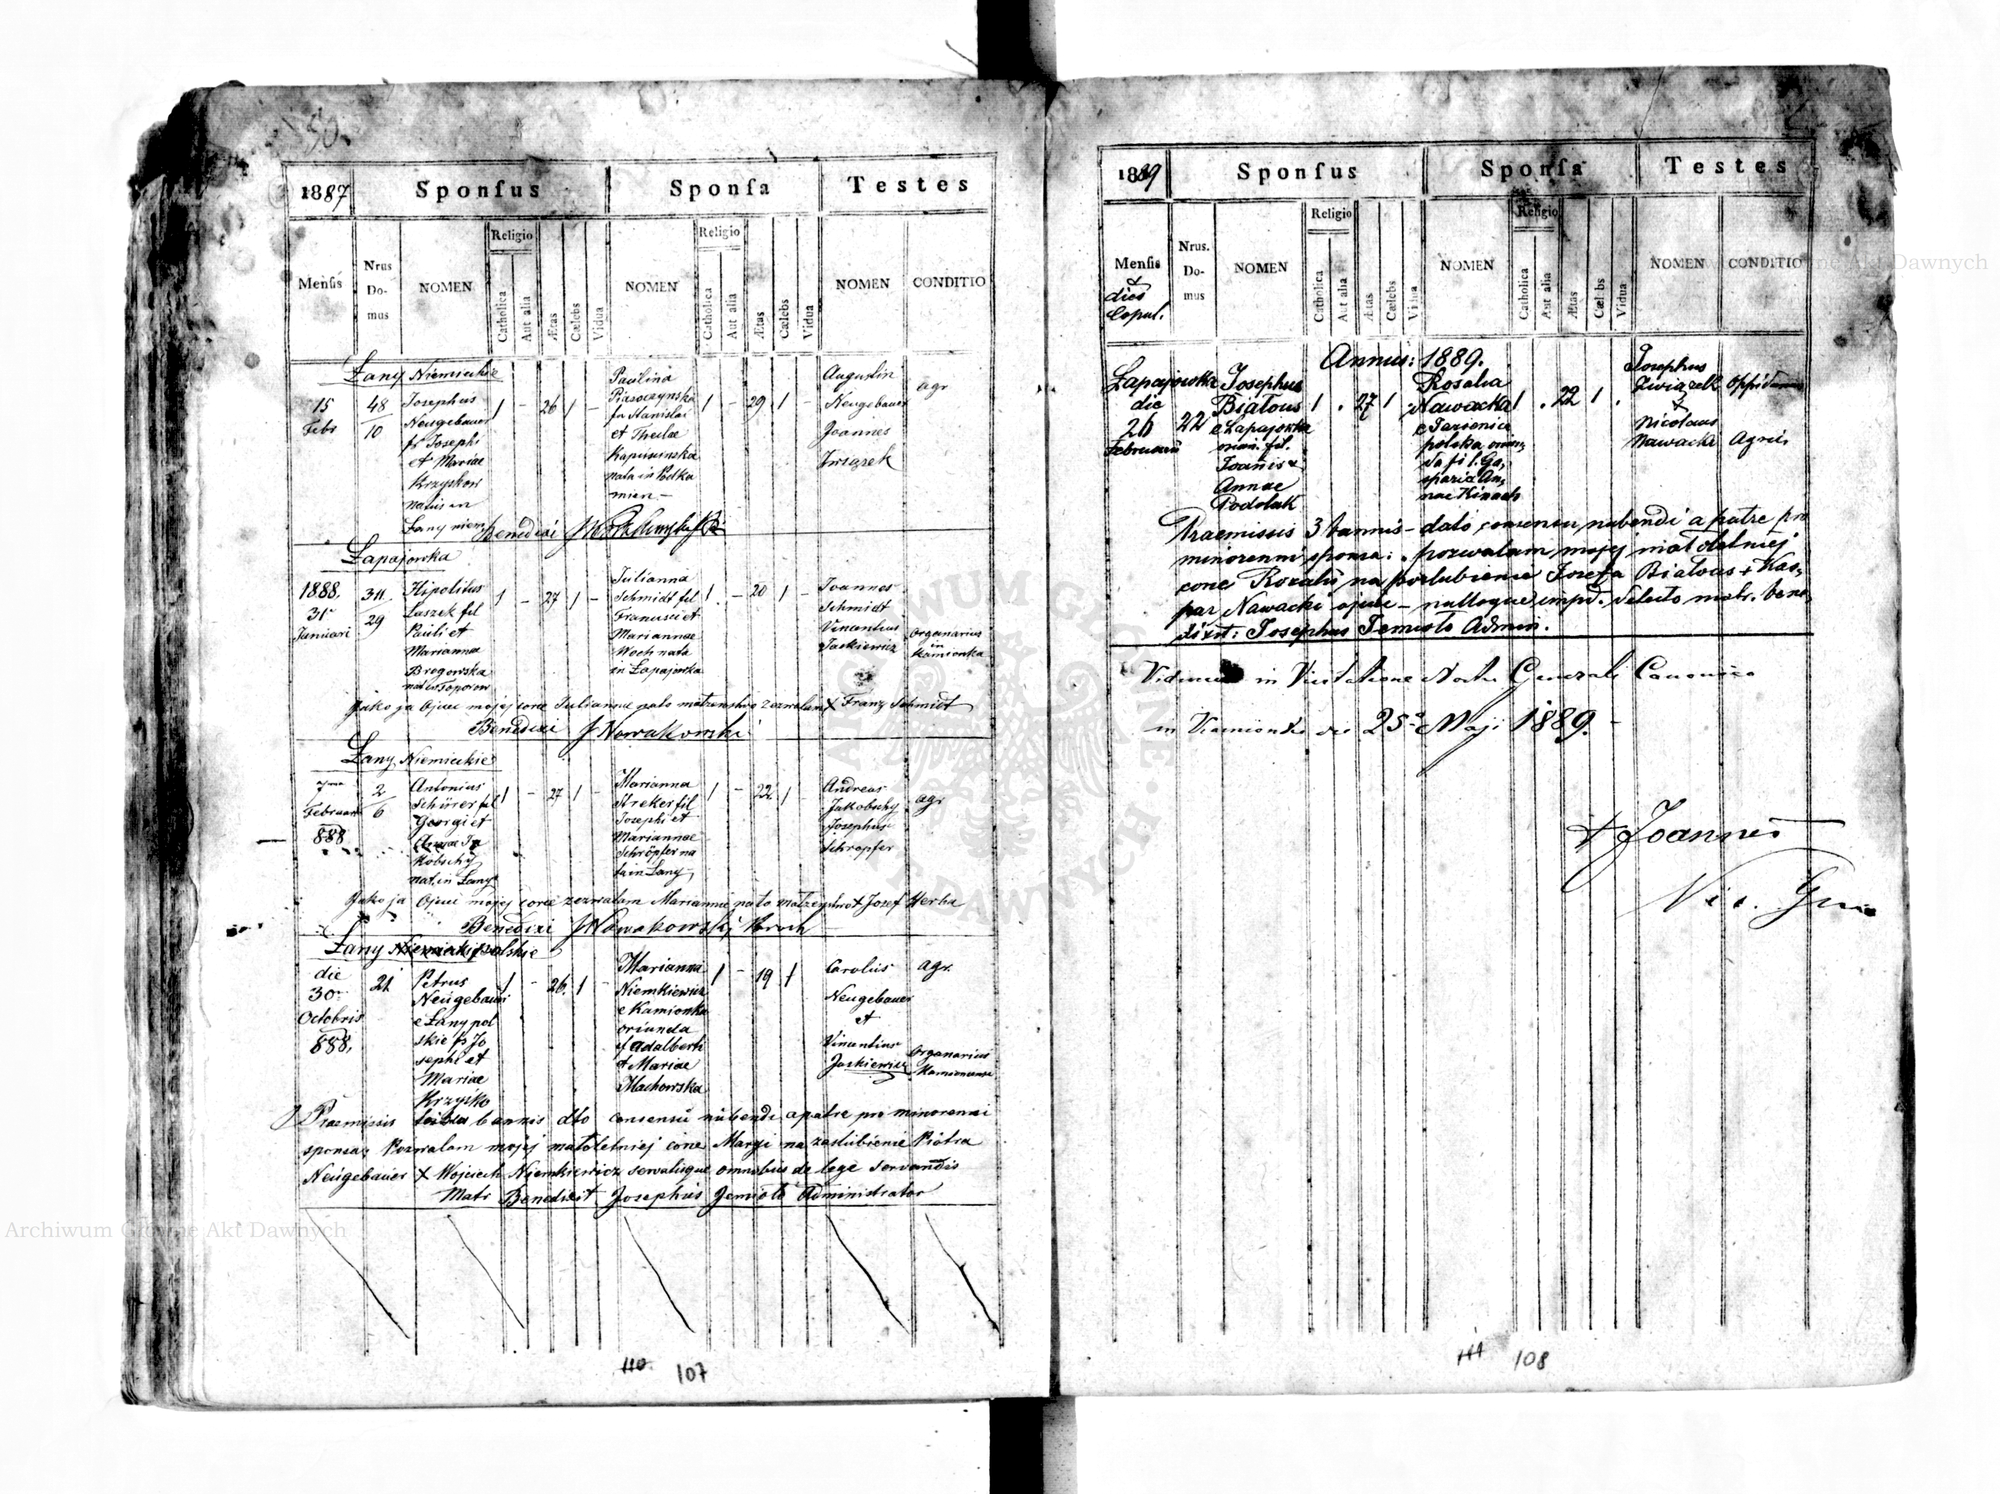 50.
1887 Sponsus Sponsa Testes
Mensis Nrus Domus NOMEN Religio Catholica Aut alia Ætas Cælebs Vidua NOMEN Religio Catholica Aut alia Ætas Cælebs Vidua NOMEN CONDITIO
Łany Niemieckie
15
Febr
48
10
Josephus
Neugebauer
fs Josephi
et Mariae
Krzyskow
natus in
Łany niem
1 - 26 1 -
Paulina
Piasoczynska
fa Stanislai
et Theclae
nata in Podka
mien -
1 - 29 1 -
Augustin
Neugebauer
Joannes
agr
Benedixi
Łapajowka
1888.
31
Januari
34
29
Hipolitus
Laszek fil
Pauli et
Marianna
Brogowska
nat in Toporow
1 - 27 1 -
Julianna
Schmidt fil
Francisci et
Mariannae
Woch nata
in Łapajowka
1 - 20 1 -
Joannes
Schmidt
Vincentius
Jaskiewicz
Organarius
in
Kamionka
Jako ja Ojciec mojej corce Juliannie na to małżenstwo zezwalam X Franz Schmidt
Benedixi J Nowakowski
Łany Niemieckie
Februar
888
2
6
Antonius
Schirrer fil
Georgi et
Annae Ja
kobschy
nat. in Łany
1 - 27 1 -
Marianna
Streker fil
Josephi et
Mariannae
Schröpfer na
ta in Łany
1 - 22 1 -
Andreas
Jakobschy
Josephus
Schropfer
agr
Jako ja Ojciec mojej corce zezwalam Mariannie na to małzenstwo X Josef
Benedixi J Nowakowski
Łany polskie
die
30
Octobris
888.
21
Petrus
Neugebauer
e Łany pol
skie fs Jo
sephi et
Mariae
Krzysko
1 - 26. 1 -
Marianna
Niemkiewicz
e Kamionka
oriunda
f. Adalberti
et Mariae
Machowska
1 - 19 1
Carolus
Neugebauer
et
Vincentius
Jaskiewicz
agr.
Organarius
Praemissis bannis dto consensu nubendi a patre pro minorenni
sponsa: Pozwalam mojej małoletniej corce Maryi na zaslubienie Piotra
Neugebauer X Wojciech Niemkiewicz servatisque omnibus de lege servandis
Matr Benedixit Josephus Jemioło Administrator
110 107
1889 Sponsus Sponsa Testes
Mensis & dies Copul. Nrus. Domus NOMEN Religio Catholica Aut alia Ætas Cælebs Vidua NOMEN Religio Catholica Aut alia Ætas Cælebs Vidua NOMEN CONDITIO
Annus: 1889.
Łapajowka
die
26
Februarii
22
Josephus
Białous
e Łapajowka
oriun. fil.
Joanis &
Annae
Podolak
1 . 27 1
Rosalia
Nawacka
polska oriun
da fil. Ga,
sparis An,
nae Kinach
1 . 22 1 .
Josephus
&
Nicolaus
Nawacki
Oppidanus
Agric
Praemissis 3 bannis - dato consensu nubendi a patre pro
minorenni sponsa: pozwalam mojej małoletniej
corce Rozalii na poslubienie Jozefa Białous + Kas,
par Nawacki ojciec - nulloque impd. detecto matr. bene
dixit: Josephus Jemioło Admin.
in Visitatione Generali Canonica
in Kamionka die 25 Maji 1889.
+ Joannes
111 108
ARCHIWUM GŁÓWNE AKT DAWNYCH
Archiwum Główne Akt Dawnych
Archiwum Główne Akt Dawnych